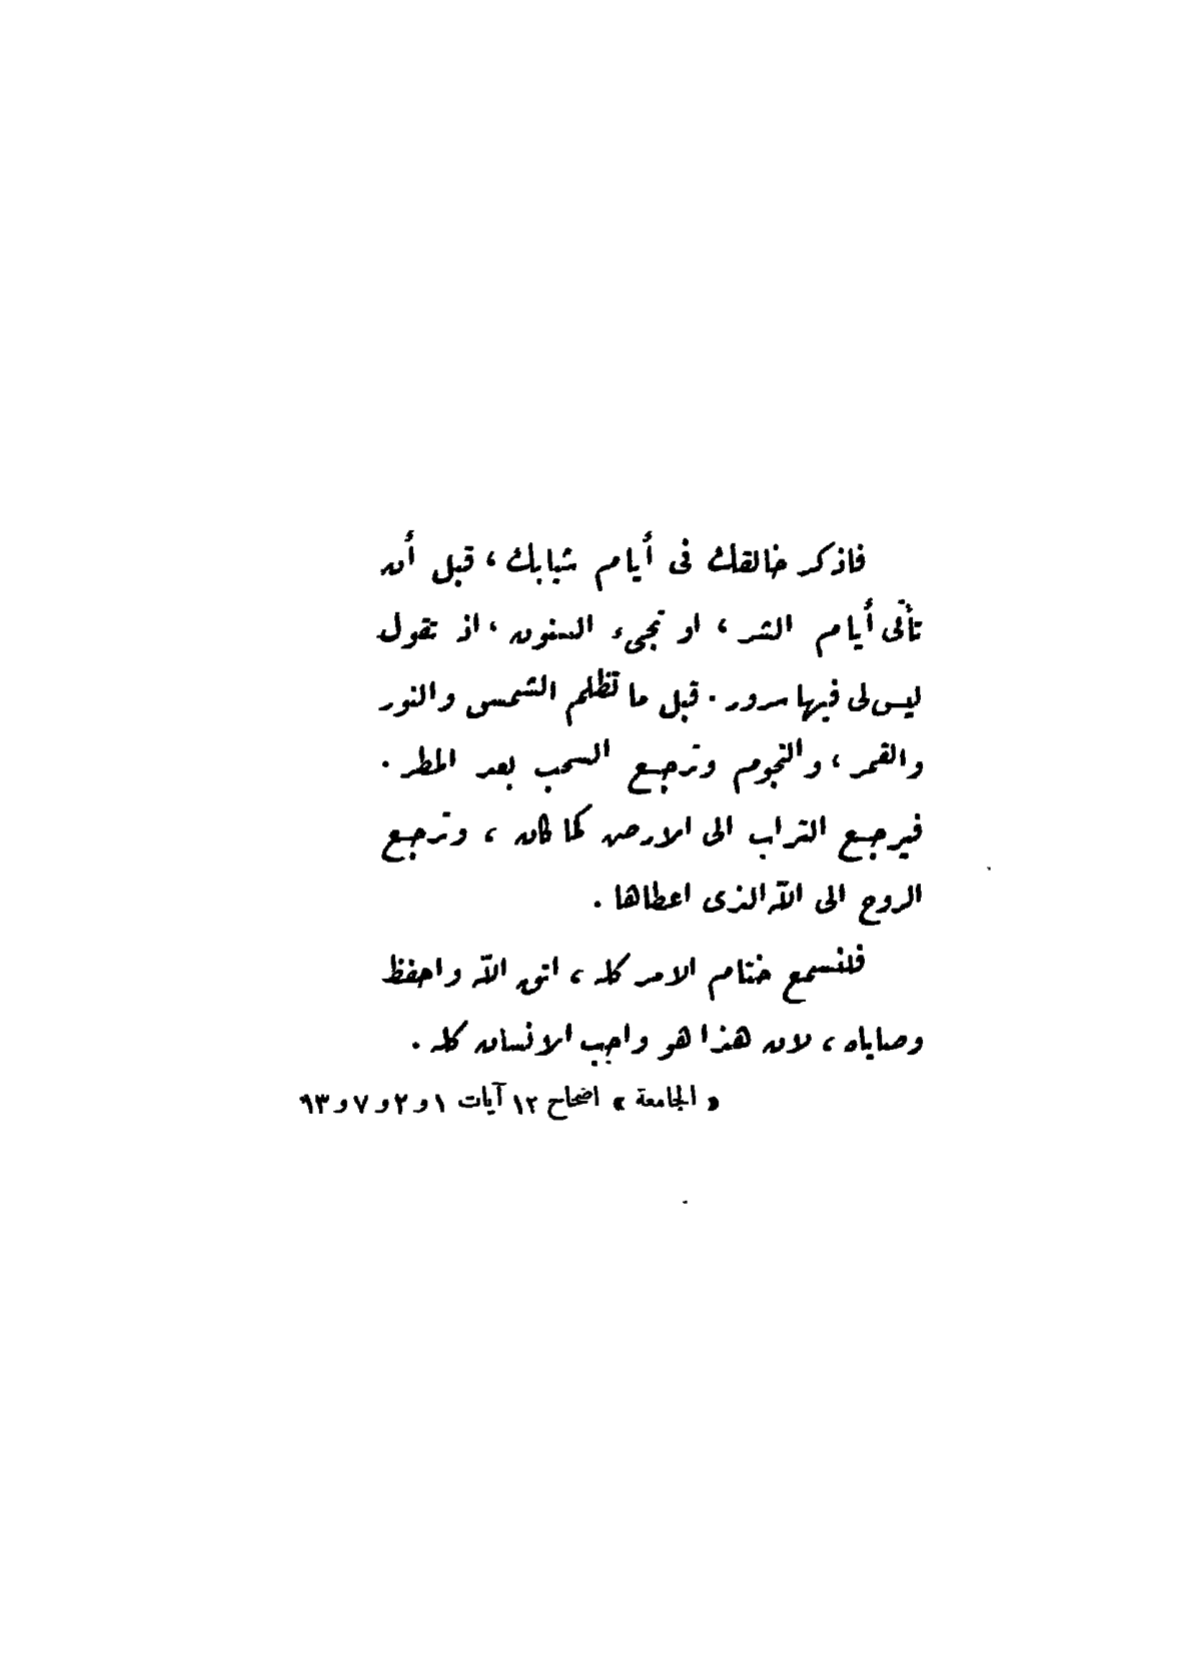 فاذكر خالقك فى أيام شبابك ، قبل أن
تأتى أيام الشر ، او تجىء السنون ، اذ تقول
ليس لى فيها سرور . قبل ما تظلم الشمس والنور
والقمر ، والنجوم وترجع السحب بعد المطر .
فيرجع التراب الى الارض كما كان ، وترجع
الروح الى الله الذى اعطاها .
فلنسمع ختام الامر كله ، اتق الله واحفظ
وصاياه ، لان هذا هو واجب الانسان كله .
« الجامعة » اضحاح ١٢ آيات ١ و ٢ و ٧ و ٩٣